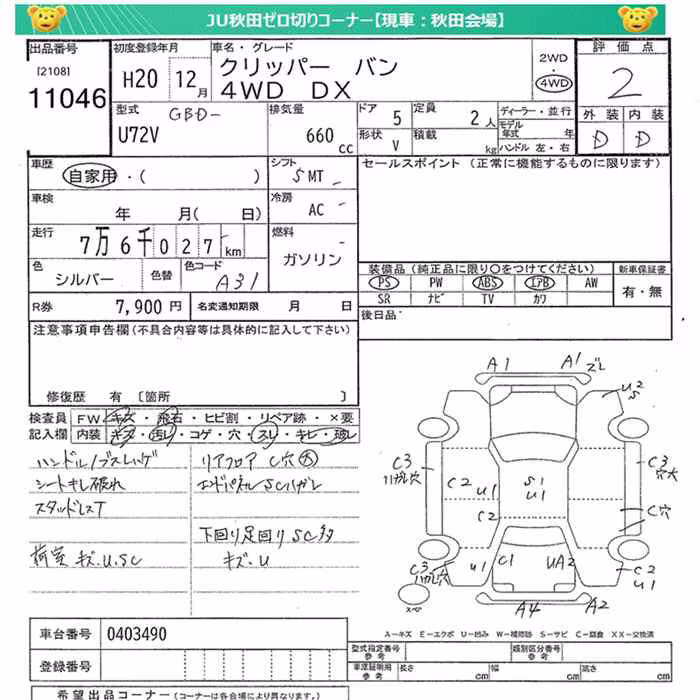 JU秋田ゼロ切りコーナー【現車：秋田会場】
出品番号 初度登録年月 車名・グレード 評価点
[2108] 11046 H20 12月 クリッパー バン 4WD DX 2WD ・ 4WD 2
型式 GBD- U72V 排気量 660cc ドア 5 定員 2人 ディーラー・並行 外装 内装
形状 V 積載 kg モデル年式 年 ハンドル 左・右 D D
車歴 自家用・( ) シフト 5MT セールスポイント (正常に機能するものに限ります)
車検 年 月( 日) 冷房 AC
走行 7万6千027km 燃料 ガソリン
色 シルバー 色替 色コード A31
装備品(純正品に限り○をつけてください) 新車保証書
PS PW ABS エアB AW 有・無
SR ナビ TV カワ
R券 7,900円 名変通知期限 月 日 後日品
注意事項申告欄(不具合内容等は具体的に記入して下さい)
修復歴 有 [箇所 ]
検査員 FW キズ・飛石・ヒビ割・リペア跡・×要
記入欄 内装 キズ・汚レ・コゲ・穴・スレ・キレ・破レ
シートキレ破れ
スタッドレスT
荷室 キズ.U.SC
リアフロア C穴大
エンドパネルSCハガレ
下回り足回りSC多
キズ.U
A1 A1 ズレ
U2 S
C3 ハガレ穴 C2 U1 S1 U1 C3 穴大
C2 C穴
C3 ハガレ穴 U1 C1 UA2 C2 U1
A4 A2
A－キズ E－エクボ U－凹み W－補修跡 S－サビ C－腐食 XX－交換済
車台番号 0403490
登録番号
型式指定番号 参考 類別区分番号 参考
車庫証明用 参考 長さ cm 幅 cm 高さ cm
希望出品コーナー (コーナーは各会場により異なります。)